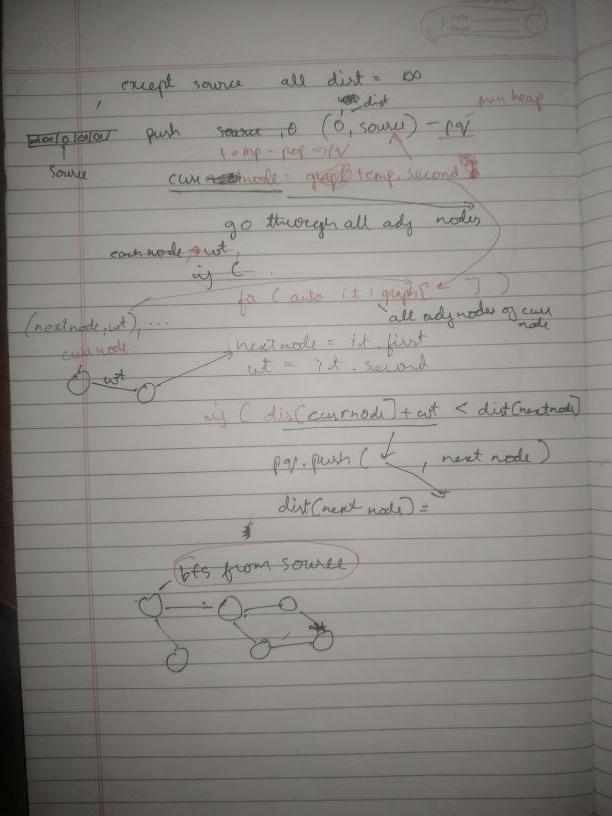 Date
Page
except source all dist = ∞
dist
min heap
push source, 0 (0, source) - pq
∞ 0 ∞ ∞
source
temp = pop → pq
curr node = graph temp.second
go through all adj nodes
each node → wt
if (
for (auto it : graph[ ] )
(nextnode, wt), ...
all adj nodes of curr node
curr node
wt
nextnode = it.first
wt = it.second
if ( dis[currnode] + wt < dist[nextnode]
pq.push ( , next node )
dist[next node] =
bfs from source